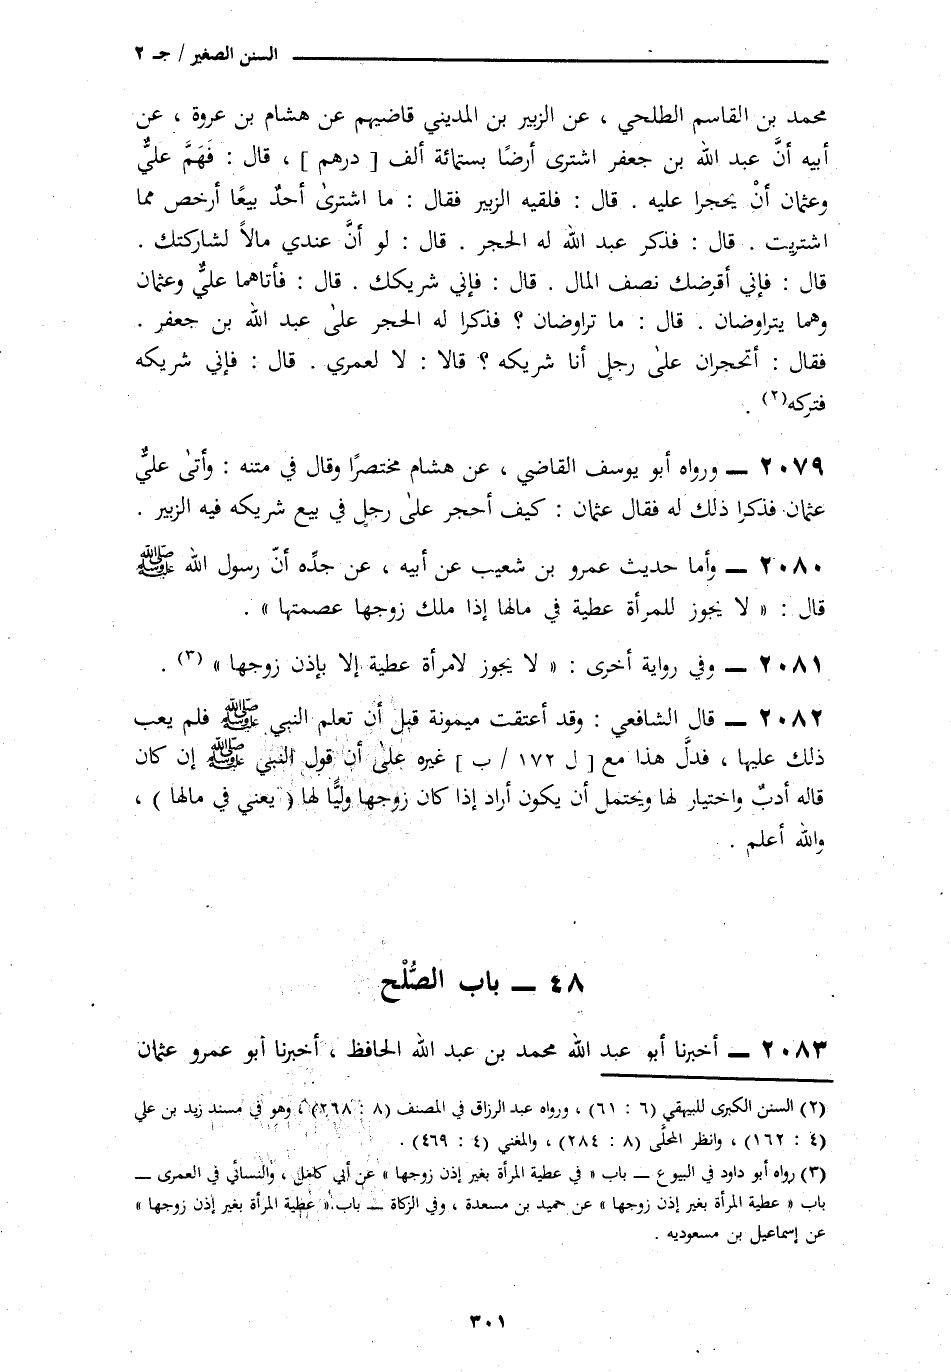 السنن الصغير / جـ ٢
محمد بن القاسم الطلحي ، عن الزبير بن المديني قاضيهم عن هشام بن عروة ، عن
أبيه أنَّ عبد الله بن جعفر اشترى أرضًا بستمائة ألف [ درهم ] ، قال : فَهَمَّ عليٌّ
وعثمان أنْ يحجرا عليه . قال : فلقيه الزبير فقال : ما اشترىٰ أحدٌ بيعًا أرخص مما
اشتريت . قال : فذكر عبد الله له الحجر . قال : لو أنَّ عندي مالاً لشاركتك .
قال : فإني أقرضك نصف المال . قال : فإني شريكك . قال : فأتاهما عليٌّ وعثمان
وهما يتراوضان . قال : ما تراوضان ؟ فذكرا له الحجر علىٰ عبد الله بن جعفر .
فقال : أتحجران علىٰ رجلٍ أنا شريكه ؟ قالا : لا لعمري . قال : فإني شريكه
فتركه(٢) .
٢٠٧٩ ــ ورواه أبو يوسف القاضي ، عن هشام مختصرًا وقال في متنه : وأتىٰ عليٌّ
عثمان فذكرا ذلك له فقال عثمان : كيف أحجر علىٰ رجلٍ في بيع شريكه فيه الزبير .
٢٠٨٠ ــ وأما حديث عمرو بن شعيب عن أبيه ، عن جدِّه أنّ رسول الله ﷺ
قال : « لا يجوز للمرأة عطية في مالها إذا ملك زوجها عصمتها » .
٢٠٨١ ــ وفي رواية أخرى : « لا يجوز لامرأة عطية إلا بإذن زوجها » (٣) .
٢٠٨٢ ــ قال الشافعي : وقد أعتقت ميمونة قبل أن تعلم النبي ﷺ فلم يعب
ذلك عليها ، فدلَّ هذا مع [ ل ١٧٢ / ب ] غيره علىٰ أن قول النبي ﷺ إن كان
قاله أدبٌ واختيار لها ويحتمل أن يكون أراد إذا كان زوجها وليًّا لها ( يعني في مالها ) ،
والله أعلم .
٤٨ ــ باب الصُّلْح
٢٠٨٣ ــ أخبرنا أبو عبد الله محمد بن عبد الله الحافظ ، أخبرنا أبو عمرو عثمان
(٢) السنن الكبرى للبيهقي (٦ : ٦١) ، ورواه عبد الرزاق في المصنف (٨ : ٢٦٨) ، وهو في مسند زيد بن علي
(٤ : ١٦٢) ، وانظر المحلَّى (٨ : ٢٨٤) ، والمغني (٤ : ٤٦٩) .
(٣) رواه أبو داود في البيوع ــ باب « في عطية المرأة بغير إذن زوجها » عن أبي كامل ، والنسائي في العمرى ــ
باب « عطية المرأة بغير إذن زوجها » عن حميد بن مسعدة ، وفي الزكاة ــ باب « عطية المرأة بغير إذن زوجها »
عن إسماعيل بن مسعوديه .
٣٠١